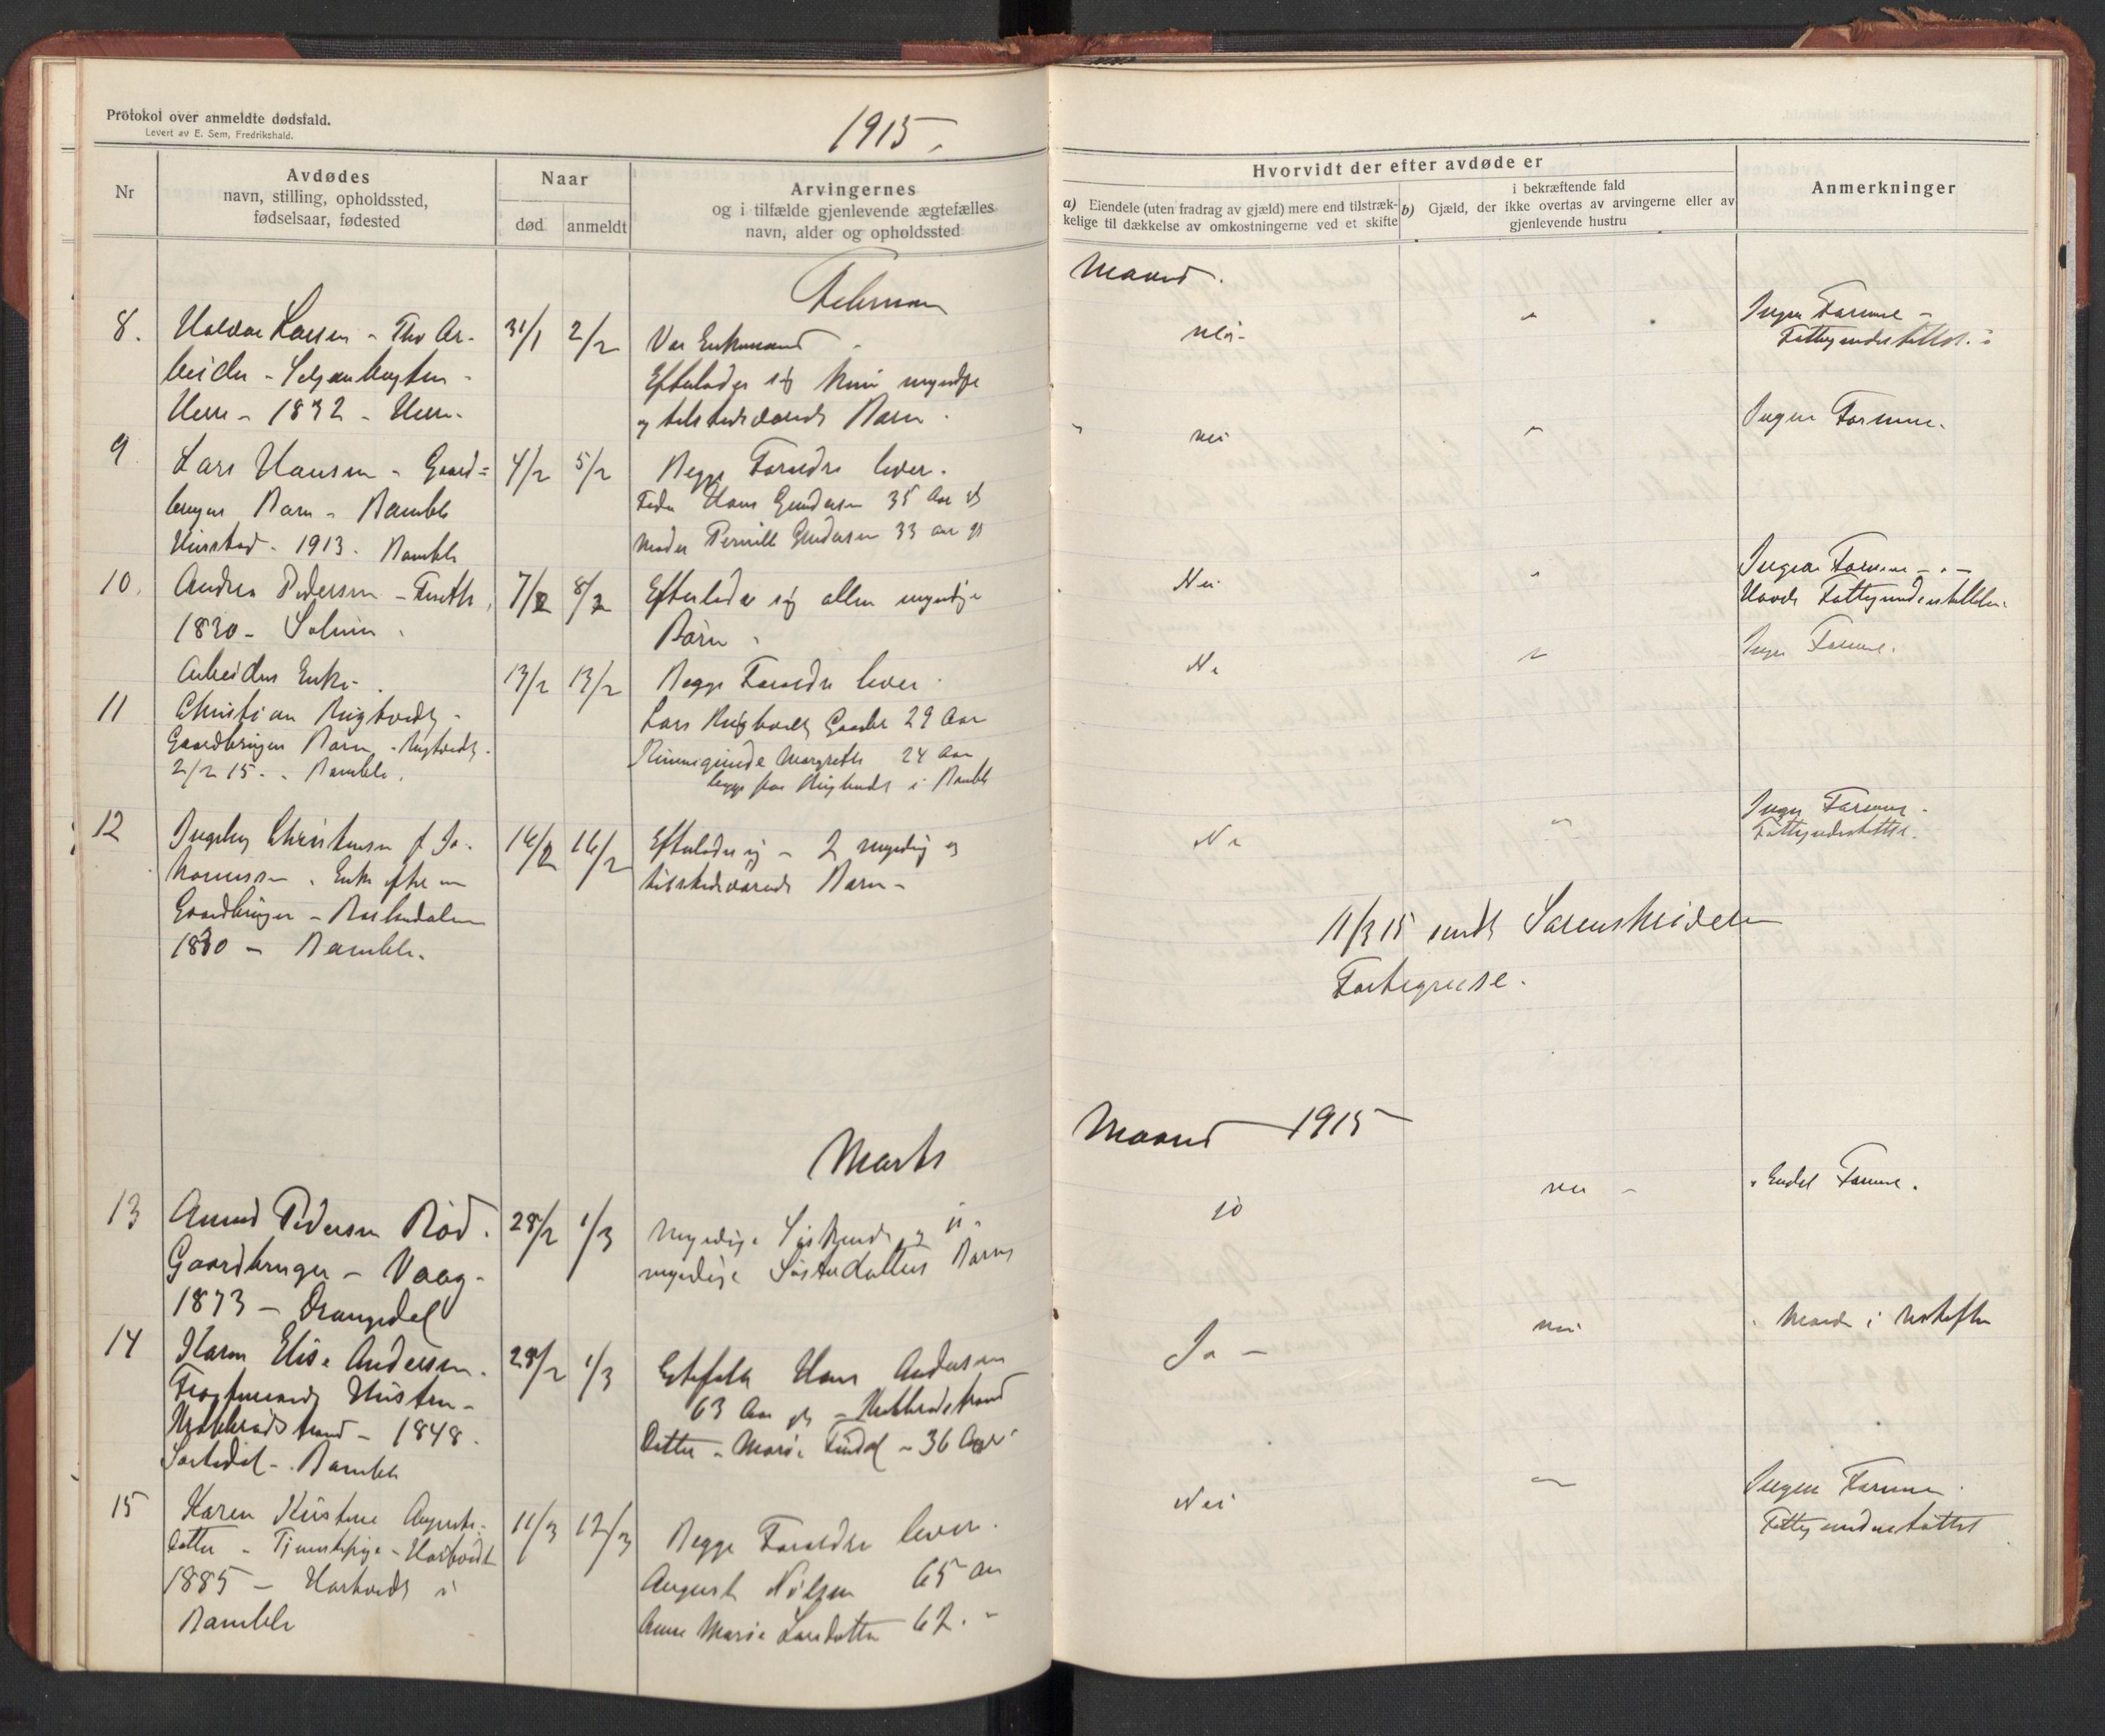 Protokol over anmeldte dødsfald.
Levert av E. Sem, Fredrikshald.
1915.
Nr
Avdødes
navn, stilling, opholdssted,
fødselsaar, fødested
Naar
død
anmeldt
Arvingernes
og i tilfælde gjenlevende ægtefælles
navn, alder og opholdssted
Hvorvidt der efter avdøde er
a) Eiendele (uten fradrag av gjæld) mere end tilstræk-
kelige til dækkelse av omkostningerne ved et skifte
i bekræftende fald
b) Gjæld, der ikke overtas av arvingerne eller av
gjenlevende hustru
Anmerkninger
Februar
Maaned.
8.
Halvor Larsen - Ar-
beider -
Herre - 1832 - Herre.
31/1
2/2
Var Enkemand -
Efterlader sig kun myndige
og tilstedeværende Barn.
nei -
"
Ingen Formue -
Fattigunderstøttet.
9
Lars Hansen - Gaard=
bruger Barn - Bamble
1913. Bamble
4/2
5/2
Begge Foreldre lever.
Fader Hans Gundersen 35 Aar
Moder Pernille Gundersen 33 aar
nei
"
Ingen Formue.
10.
Andrea Pedersen -
1830 - Solum.
Arbeider Enke.
7/2
8/2
Efterlader sig alle myndige
Børn.
Nei
"
Ingen Formue -
Havde Fattigunderstøttelse.
11
Christian Rugtvedt -
Gaardbruger Barn - Rugtvedt -
2/2 15. - Bamble.
13/2
13/2
Begge Foreldre lever.
Lars Rugtvedt Gaardbr 29 Aar
Margrethe 24 Aar
begge paa Rugtvedt i Bamble
Ne
"
Ingen Formue.
12
Ingeborg Christensen f. Jo-
hannessen. Enke efter en
Gaardbruger -
1830 - Bamble.
16/2
16/2
Efterlader sig - 2 myndig og
tilstedeværende Barn -
Ne
"
Ingen Formue -
Fattigunderstøttet.
11/3 15 sendt Sorenskriveren
Fortegnelse.
Marts
Maaned 1915
13
Amund Pedersen Rød.
Gaardbruger - Vaag -
1873 - Drangedal
28/2
1/3
Myndige Søskende og u-
myndige Søsterdatters Barn
jo
nei -
Endel Formue.
14
Karen Elise Andersen.
Hustru -
1848.
Bamble
28/2
1/3
Egtefelle Hans Andersen
63 Aar
Datter - Marie - 36 Aar
Ja -
nei
Mand i Uskifte
15
Karen Kristine Augusts-
datter - Tjenestepige - Hartvedt
1885 - Hartvedt i
Bamble
11/3
12/3
Begge Foreldre lever.
August Nilsen 65 aar
Anne Marie Larsdatter 62. -
Nei
"
Ingen Formue.
Fattigunderstøttet